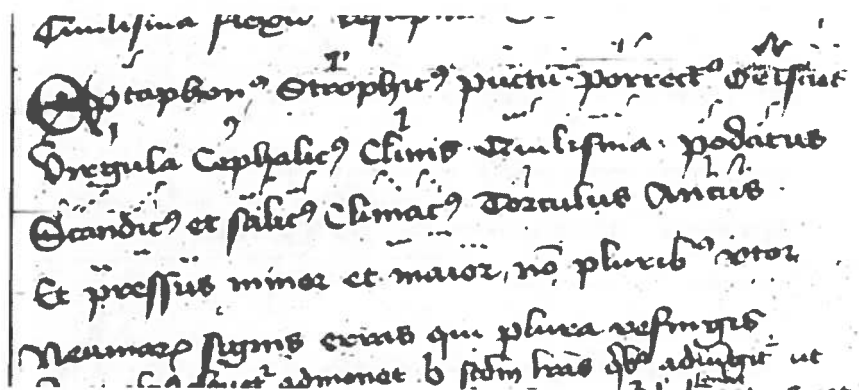 Quilisma flexu
Eptaphon⁹ Strophic⁹ punctū porrect⁹ Oriscus
Virgula Cephalic⁹ Clinis Quilisma podatus
Scandic⁹ et salic⁹ Climac⁹ Torculus Ancus
Et pressus minor et maior, nō plurib⁹ vtor
Neumaꝝ signis erras qui plura refingis
admonet b